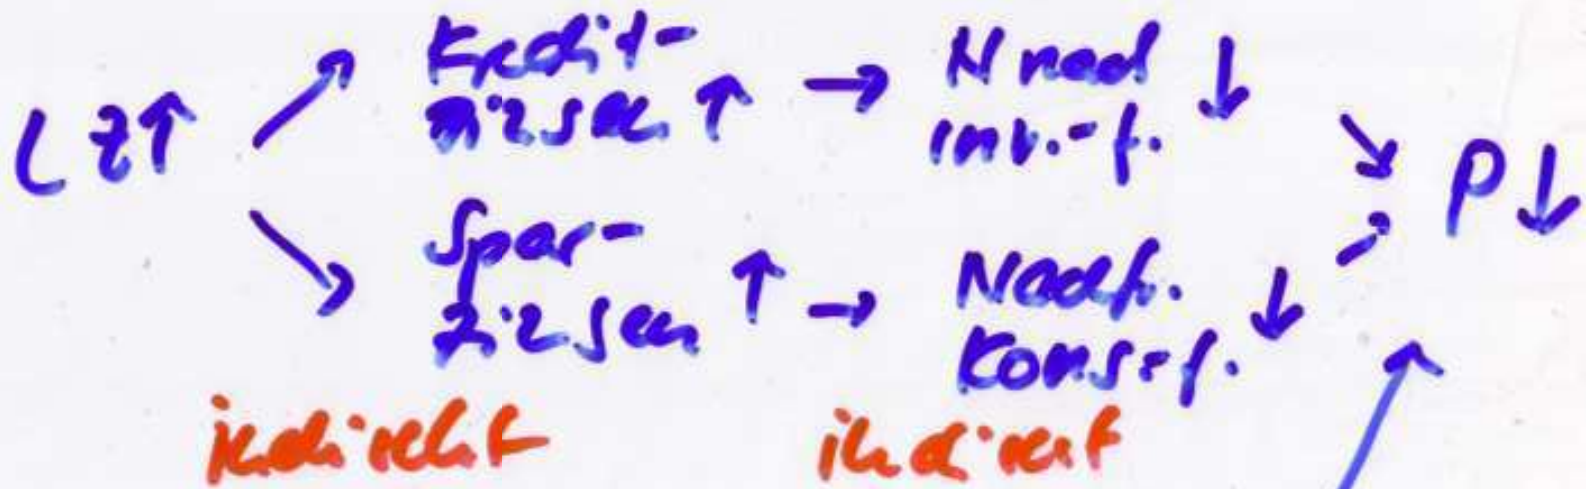 LZ↑ ↗ Kredit-
zinsen ↑ → Nach
inv.-f. ↓ ↘ P↓
↘ Spar-
zinsen ↑ → Nachf.
Kons.-f. ↓ ↗
indirekt indirekt